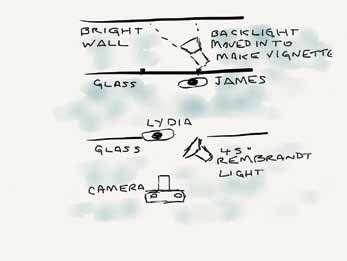 BRIGHT
WALL
BACKLIGHT
MOVED IN TO
MAKE VIGNETTE
GLASS
JAMES
LYDIA
GLASS
45°
REMBRANDT
LIGHT
CAMERA